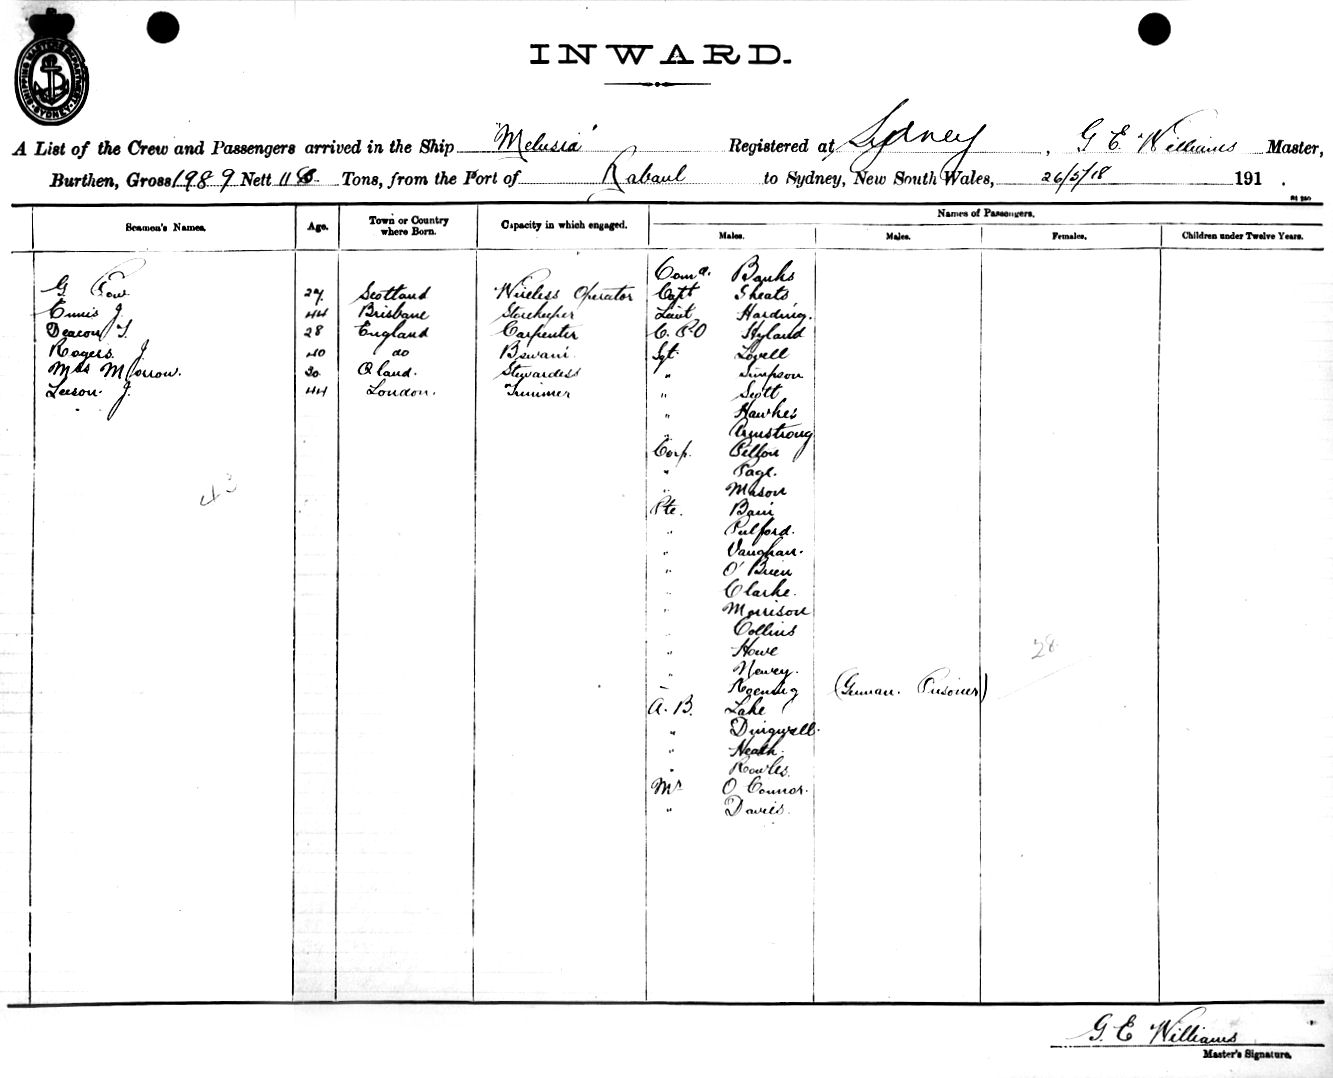 SHIPPING MASTER'S DEPARTMENT SYDNEY
INWARD.
A List of the Crew and Passengers arrived in the Ship "Melusia" Registered at Sydney, G. E. Williams Master,
Burthen, Gross 1989 Nett Tons, from the Port of Rabaul to Sydney, New South Wales, 26/5/18 191 .
Names of Passengers.
Seamen's Names. Age. Town or Country where Born. Capacity in which engaged. Males. Males. Females. Children under Twelve Years.
Comd. Banks
G. 27 Scotland Wireless Operator Capt Sheats
Ennis J. 44 Brisbane Storekeeper Lieut Harding.
Deacon T. 28 England Carpenter C. P.O Hyland
Rogers J. 40 do Sgt. Lovell
Mrs Morrow. 30 Stewardess " Simpson
Leeson J. 44 London. Trimmer " Scott
" Hawkes
" Armstrong
Corp.
" Page.
43 " Mason
Pte. Bain
" Pulford.
" Vaughan.
" O'Brien
" Clarke.
" Morrison
" Collins
" Howe 28
" Newey.
(German. Prisoner)
A. B. Lake
" Dingwell.
" Heath.
" Rowles.
Mr O Connor.
" Davies.
G. E Williams
Master's Signature.